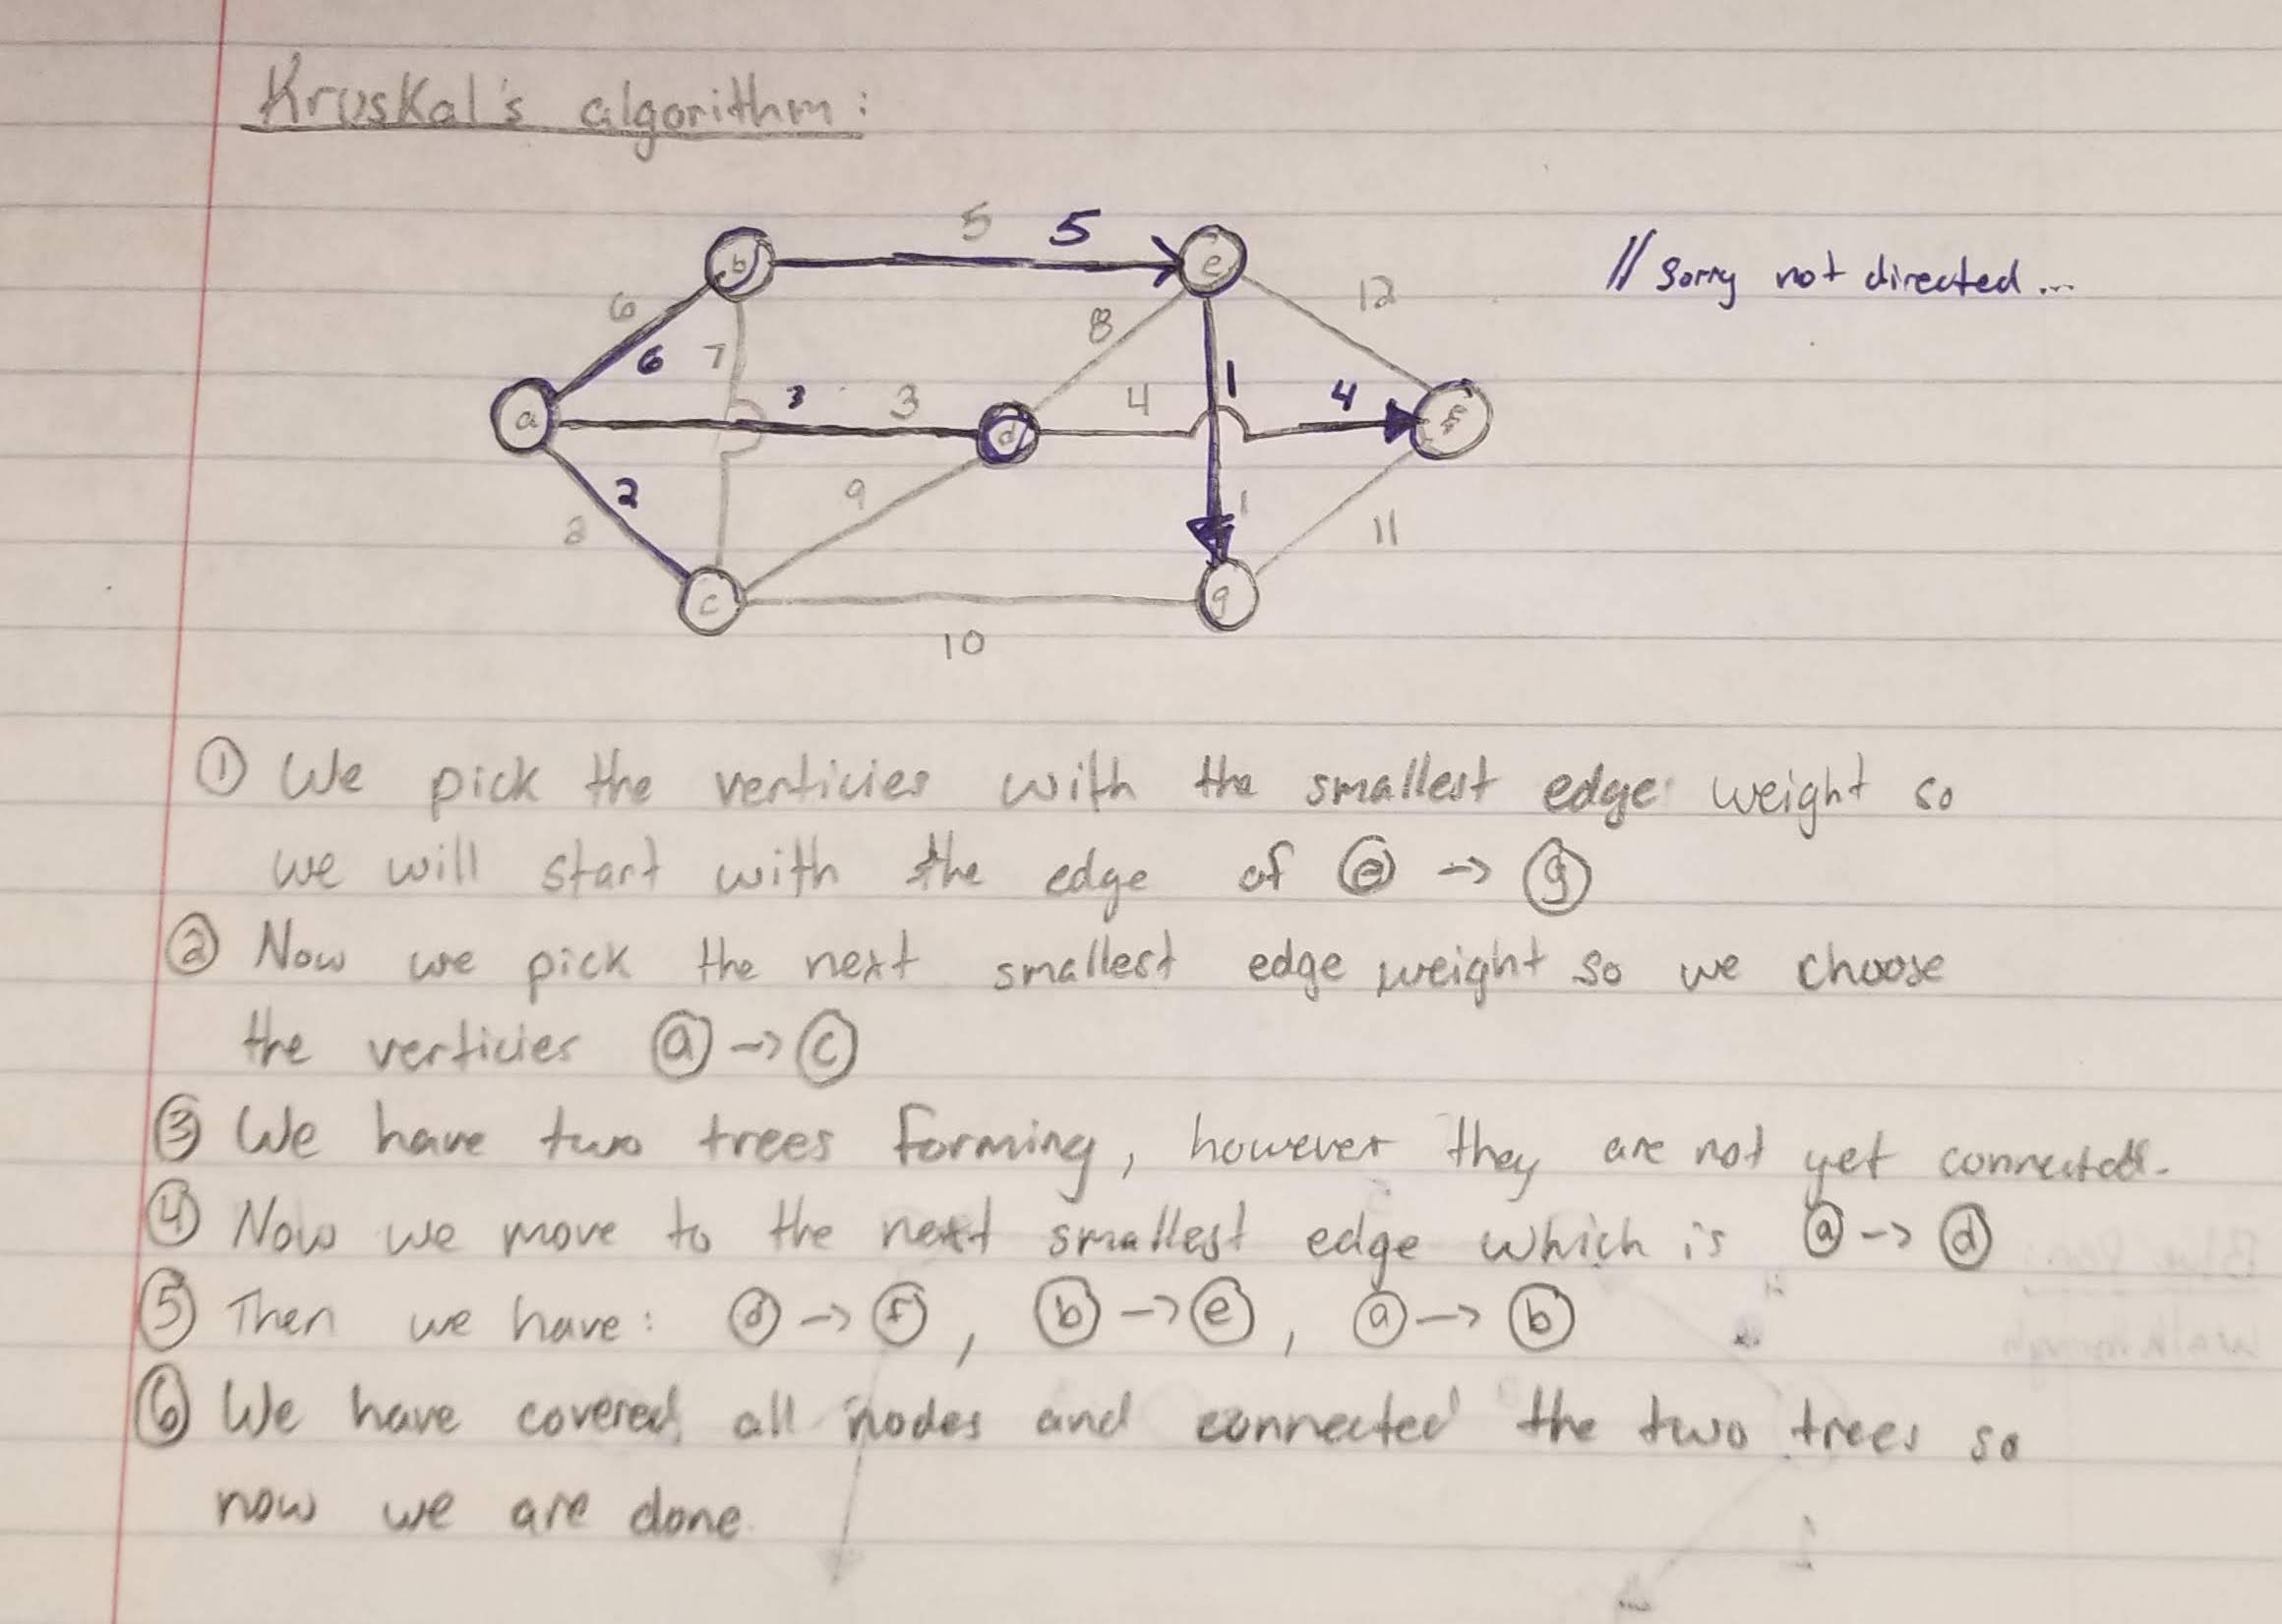 Kruskal's algorithm:
5 5
b e
// Sorry not directed...
6 12
8
6 7 1
3 3 4 4
a d f
2 9
2 1 11
c g
10
① We pick the verticies with the smallest edge weight so
we will start with the edge of ⓔ -> ⓖ
② Now we pick the next smallest edge weight so we choose
the verticies ⓐ -> ⓒ
③ We have two trees forming, however they are not yet connected.
④ Now we move to the next smallest edge which is ⓐ -> ⓓ
⑤ Then we have: ⓓ -> ⓕ, ⓑ -> ⓔ, ⓐ -> ⓑ
⑥ We have covered all nodes and connected the two trees so
now we are done